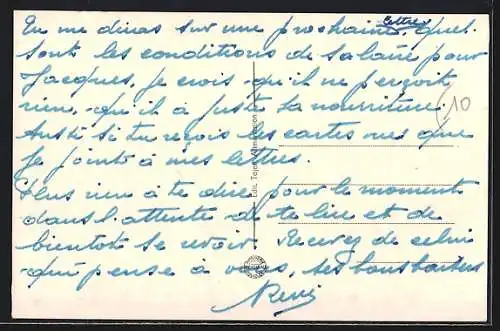 Tu me diras sur une prochaine lettre quel
sont les conditions de salaire pour
Jacques, je crois qu'il ne perçoit
rien, qu'il a juste la nourriture.
Aussi si tu reçois les cartes vues que
je joints à mes lettres.
Plus rien à te dire pour le moment
dans l'attente de te lire et de
bientot se revoir. Recevez de celui
qui pense à vous, ses bons baisers
10
Edit.